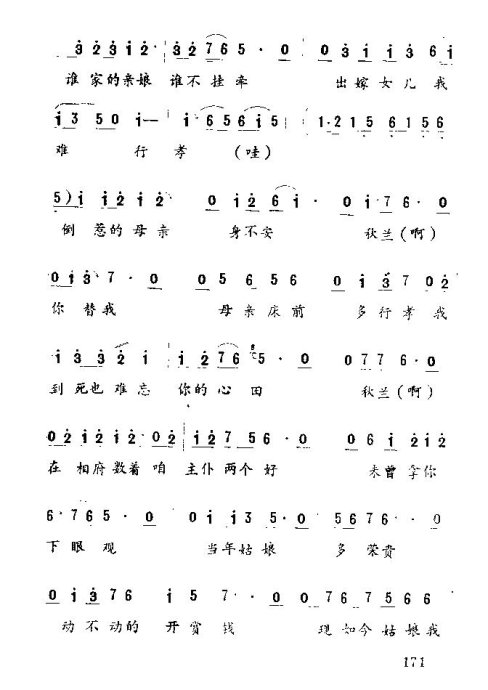 3 2 3 1 2· 3 2 7 6 5· 0 0 3 1 1 3 6 1
谁家的亲娘 谁不挂牵 出嫁女儿我
1 3 5 0 1— 1· 6 5 6 1 5 1·2 1 5 6 1 5 6
难 行孝 (哇)
5) 1 1 2 1 2 0 1 2 6 1· 0 1·7 6·0
倒惹的母亲 身不安 秋兰(啊)
0 1 3·7·0 0 5 6 5 6 0 1 3 7 0 2
你替我 母亲床前 多行孝我
1 3 3 2 1 1·2 7 6 5·0 0 7 7 6·0
到死也难忘 你的心田 秋兰(啊)
0 2 1 2 1 2 0 2 1 2 7 5 6·0 0 6 1 2 1 2
在相府数着咱 主仆两个好 未曾拿你
6·7 6 5·0 0 1 1 3 5·0 5 6 7 6·0
下眼观 当年姑娘 多荣贵
0 1 3 7 6 1 5 7·0 0 7 6 7 5 6 6
动不动的开赏钱 现如今姑娘我
171